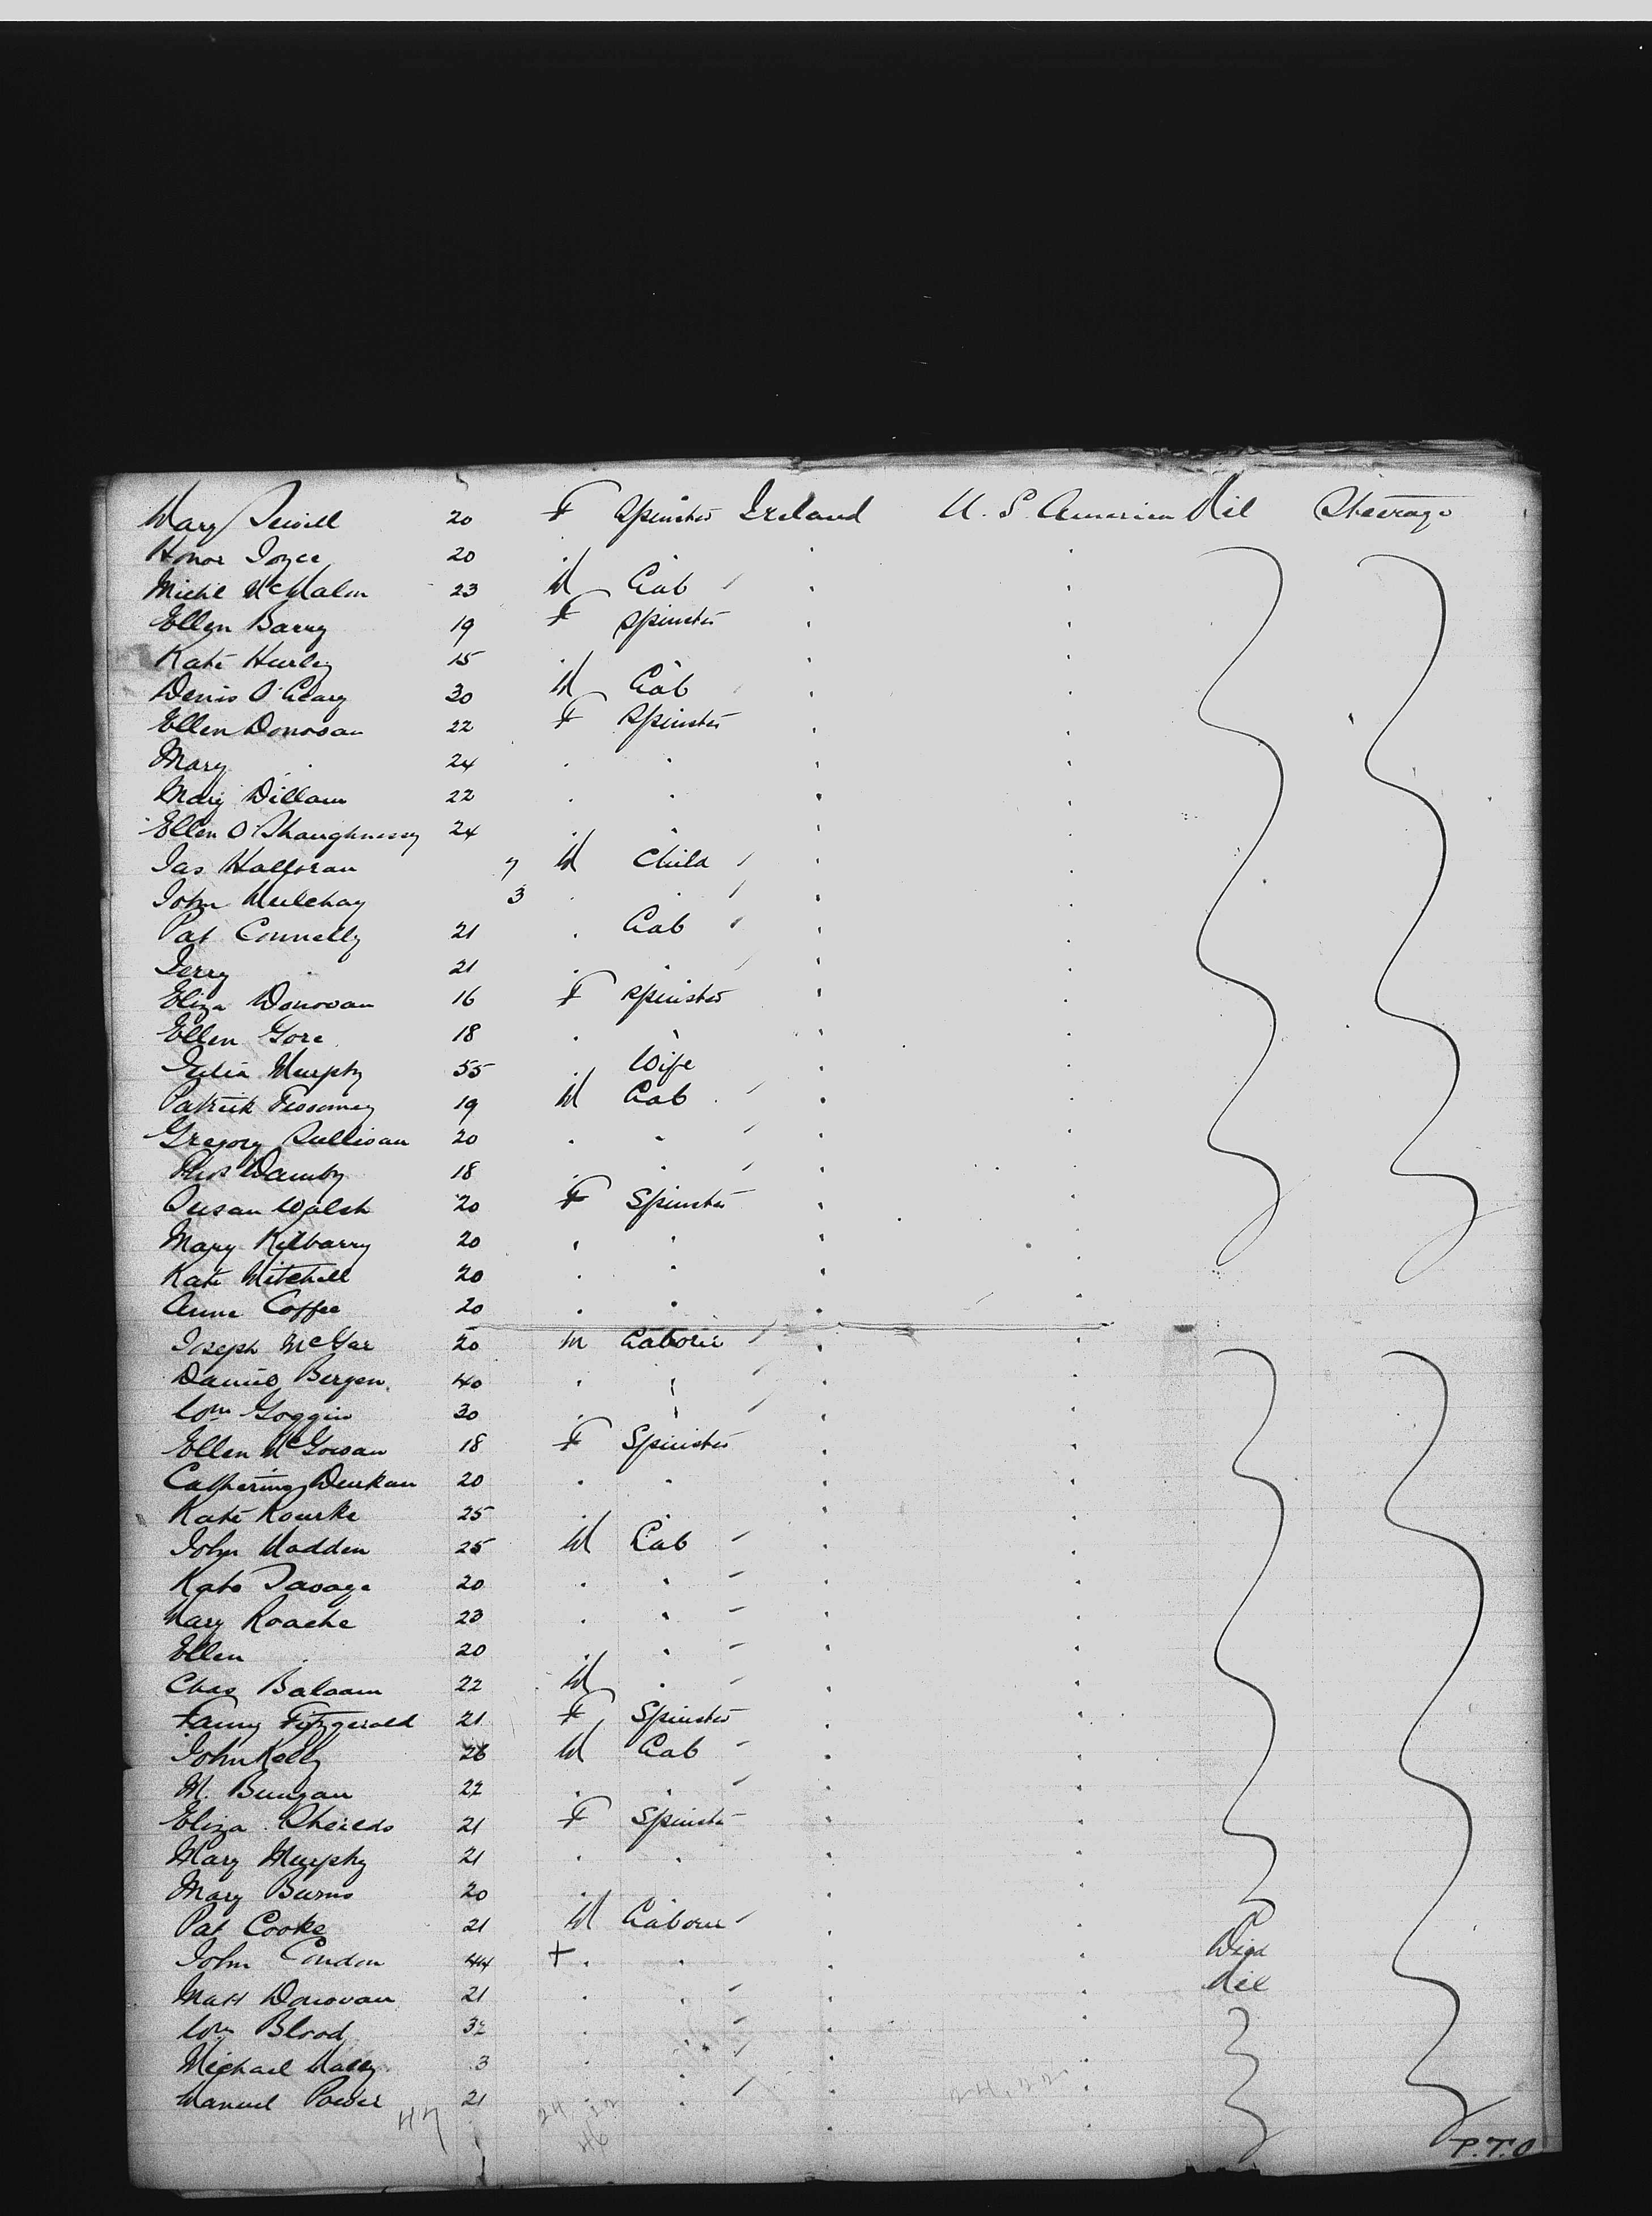 Mary 20 F Spinster Ireland U. S. America Nil Steerage
Honor Joyce 20 . .
Michl McMahon 23 M Lab
Ellen Barry 19 F Spinster
Kate Hurley 15 . .
Denis O'Leary 30 M Lab
Ellen Donovan 22 F Spinster
Mary . 24 . .
Mary Dillam 22 . .
Ellen O'Shaughnessy 24 . .
Jas Halloran 7 M Child
John Mulchay 3 . .
Pat Connelly 21 . Lab
Jerry . 21 . .
Eliza Donovan 16 F Spinster
Ellen Gore 18 . .
Julia Murphy 55 . Wife
Patrick 19 M Lab
Gregory Sullivan 20 . .
Thos 18 . .
Susan Walsh 20 F Spinster
Mary Kilbarry 20 . .
Kate Mitchell 20 . .
Anne Coffee 20 . .
Joseph 20 M Laborer
Daniel Bergen 40 . .
Wm Goggin 30 . .
Ellen McGowan 18 F Spinster
Catherine Durkan 20 . .
Kate Rourke 25 . .
John Madden 25 M Lab
Kate Savage 20 . .
Mary Roache 23 . .
Ellen . 20 . .
Chas Balaam 22 M .
Fanny Fitzgerald 21 F Spinster
John Kelly 26 M Lab
M. 22 . .
Eliza Sheilds 21 F Spinster
Mary Murphy 21 . .
Mary Burns 20 . .
Pat Cooke 21 M Laborer
John Condon 44 + . . Died
Matt Donovan 21 . . Nil
Wm Blood 32 . .
Michael 3 . .
Manuel Power 21 . .
47 24.22 24.22
46
P.T.O